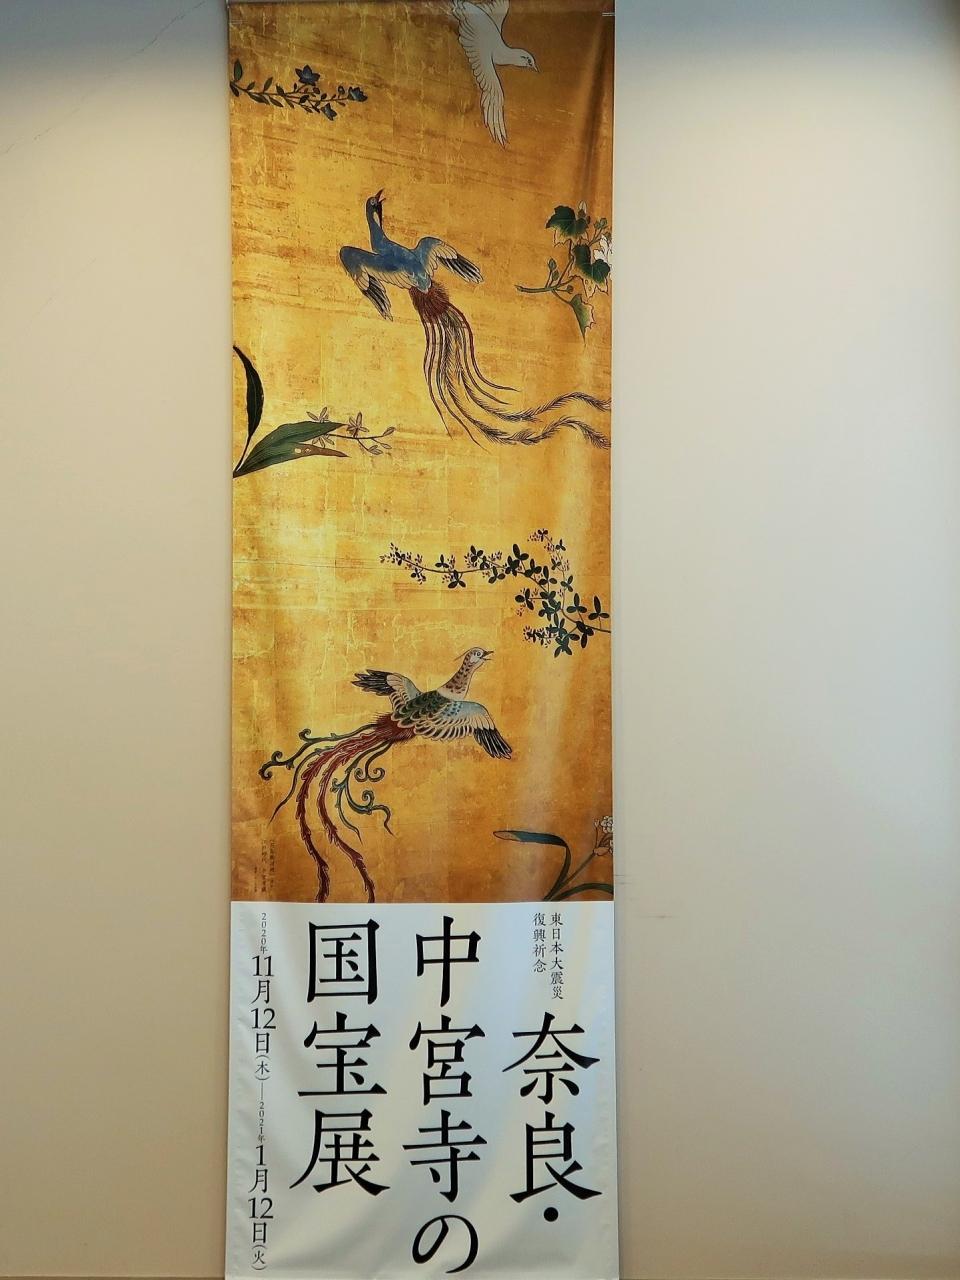 東日本大震災
復興祈念
奈良・
中宮寺の
国宝展
2020年11月12日(木)―2021年1月12日(火)